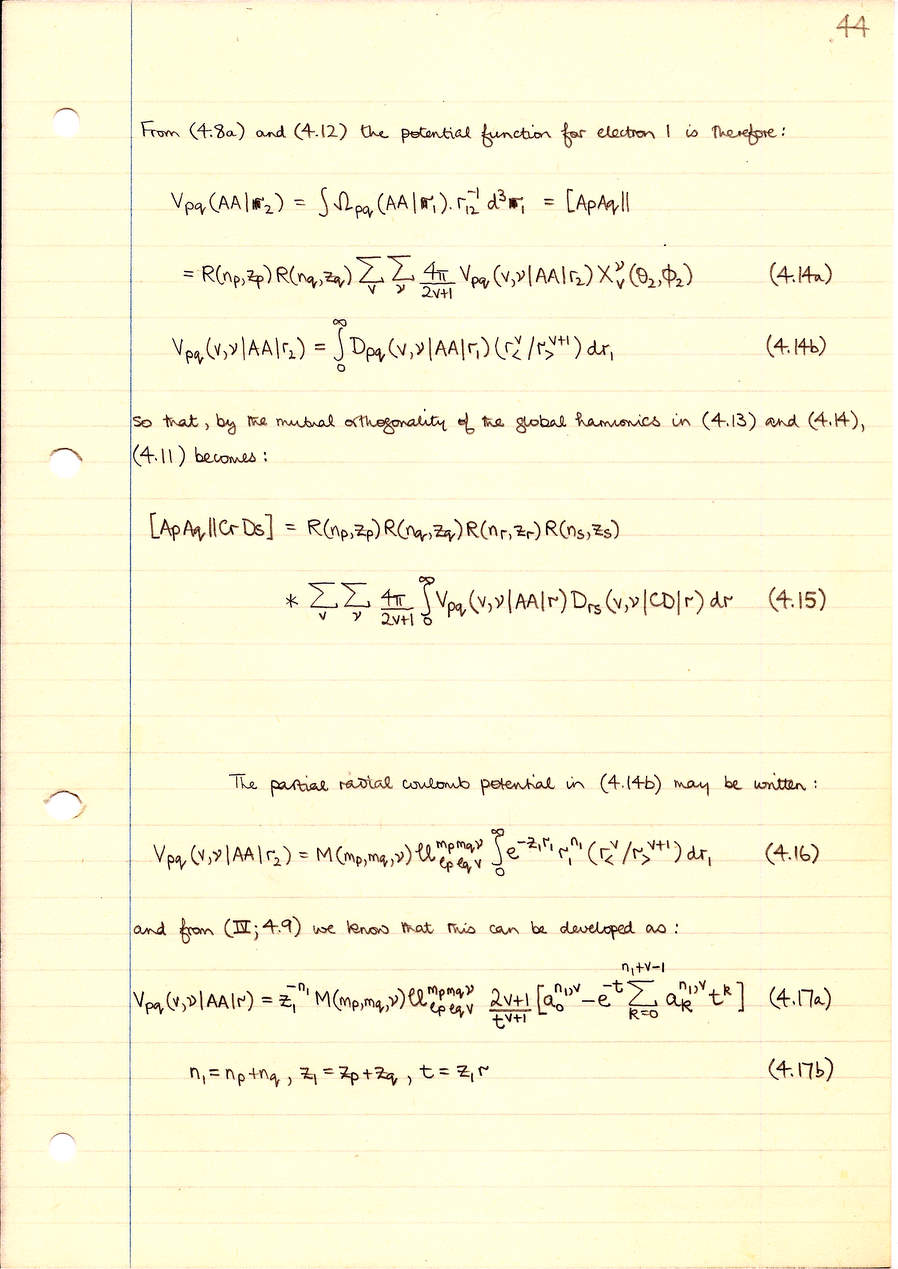 44
From (4.8a) and (4.12) the potential function for electron 1 is therefore:
V_pq(AA|r_2) = ∫Ω_pq(AA|r_1).r_12^-1 d^3r_1 = [ApAq||
= R(n_p,z_p)R(n_q,z_q) Σ_v Σ_ν 4π/(2v+1) V_pq(v,ν|AA|r_2) X_v^ν(θ_2,ϕ_2) (4.14a)
V_pq(v,ν|AA|r_2) = ∫_0^∞ D_pq(v,ν|AA|r_1)(r_<^v/r_>^v+1) dr_1 (4.14b)
So that, by the mutual orthogonality of the global harmonics in (4.13) and (4.14),
(4.11) becomes:
[ApAq||CrDs] = R(n_p,z_p)R(n_q,z_q)R(n_r,z_r)R(n_s,z_s)
* Σ_v Σ_ν 4π/(2v+1) ∫_0^∞ V_pq(v,ν|AA|r) D_rs(v,ν|CD|r) dr (4.15)
The partial radial coulomb potential in (4.14b) may be written:
V_pq(v,ν|AA|r_2) = M(m_p,m_q,ν) U^{m_p m_q ν}_{l_p l_q v} ∫_0^∞ e^{-z_1r_1} r_1^{n_1} (r_<^v/r_>^v+1) dr_1 (4.16)
and from (IV; 4.9) we know that this can be developed as:
V_pq(v,ν|AA|r) = z_1^{-n_1} M(m_p,m_q,ν) U^{m_p m_q ν}_{l_p l_q v} (2v+1)/t^{v+1} [a_0^{n_1,v} − e^{-t} Σ_{k=0}^{n_1+v-1} a_k^{n_1,v} t^k] (4.17a)
n_1 = n_p+n_q, z_1 = z_p+z_q, t = z_1r (4.17b)